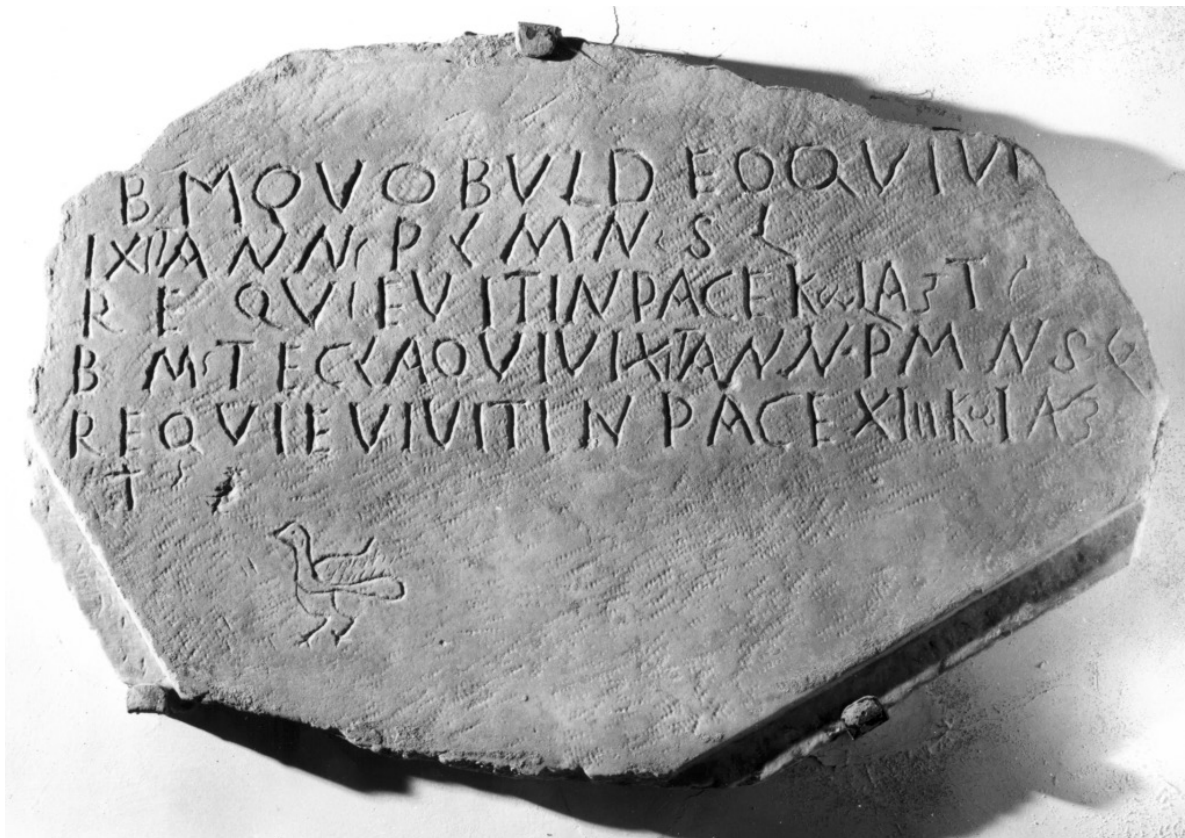 B M QVOBVLDEOQVIVI
IXITANN P L M N S L
REQVIEVITINPACEK IA T
B M S TECLAQVIVIXITANN P M N S L
REQVIIEVIVITINPACEXIIIIK IA
T S